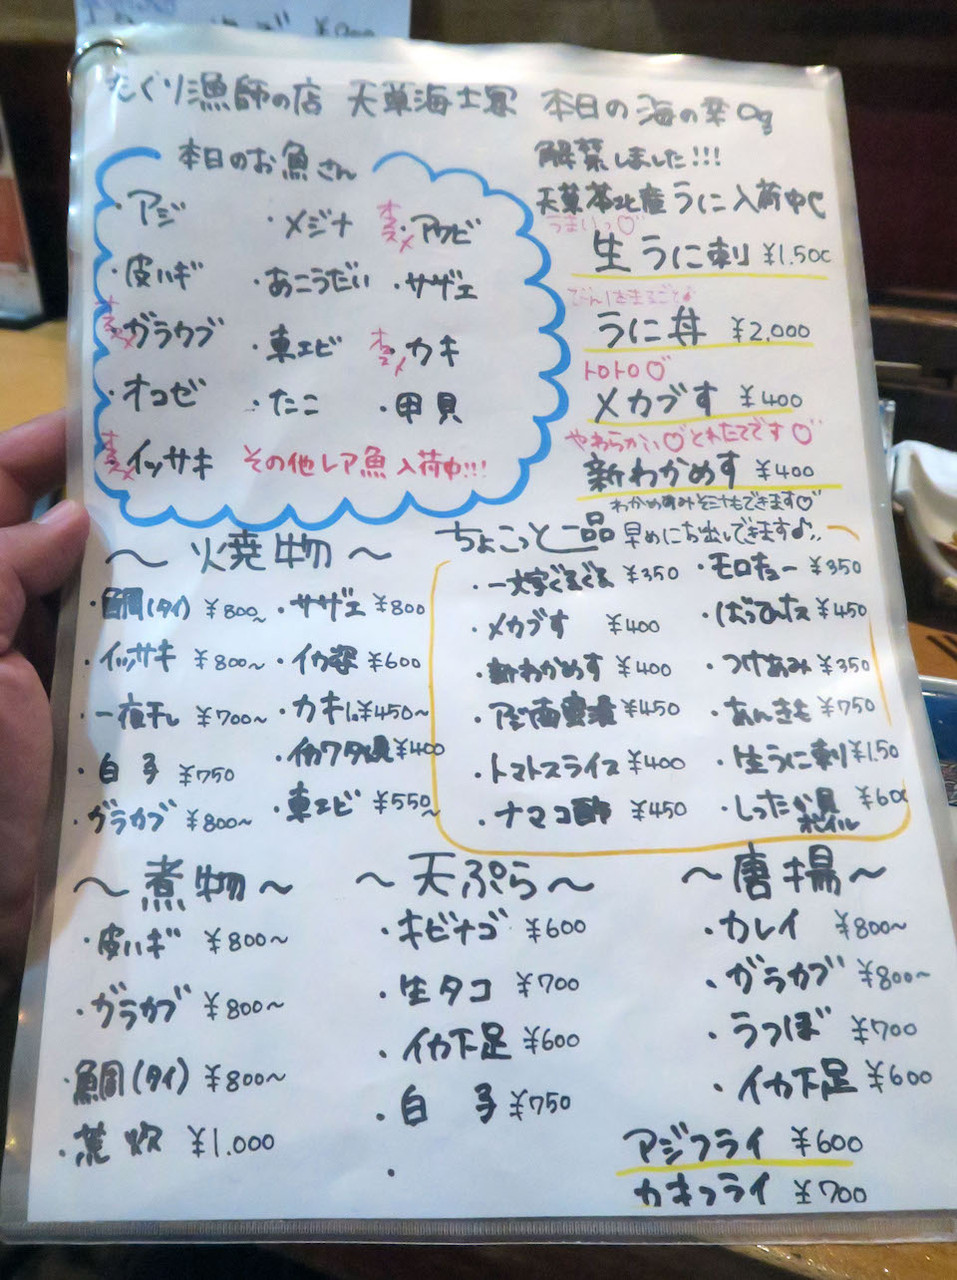 もぐり漁師の店 天草海士宴 本日の海の幸
本日のお魚さん
・アジ
・皮ハギ
オススメ ガラカブ
・オコゼ
オススメ イッサキ
・メジナ
・あこうだい
・車エビ
・たこ
オススメ ・アワビ
・サザエ
オススメ ・カキ
・甲貝
その他レア魚入荷中!!!
解禁しました!!!
天草苓北産うに入荷中
うまいっ♡
生うに刺 ¥1.500
うに丼 ¥2.000
トロトロ♡
メカブす ¥400
やわらかい♡とれたてです♡
新わかめす ¥400
〜焼物〜
・鯛(タイ) ¥800〜
・イッサキ ¥800〜
・一夜干し ¥700〜
・白子 ¥750
・ガラカブ ¥800〜
・サザエ ¥800
・イカ姿 ¥600
・カキ ¥450〜
・イカワタ焼 ¥400
・車エビ ¥550〜
ちょこっと一品 早めにお出しできます♪
・一文字ぐるぐる ¥350
・メカブす ¥400
・新わかめす ¥400
・アジ南蛮漬 ¥450
・トマトスライス ¥400
・ナマコ酢 ¥450
・モロキュー ¥350
¥450
・つけあみ ¥350
・あんきも ¥750
・生うに刺 ¥1.50
・しったか貝ボイル ¥60
〜煮物〜
・皮ハギ ¥800〜
・ガラカブ ¥800〜
・鯛(タイ) ¥800〜
・荒炊 ¥1.000
〜天ぷら〜
・キビナゴ ¥600
・生タコ ¥700
・イカ下足 ¥600
・白子 ¥750
・
〜唐揚〜
・カレイ ¥800〜
・ガラカブ ¥800〜
・うつぼ ¥700
・イカ下足 ¥600
アジフライ ¥600
カキフライ ¥700